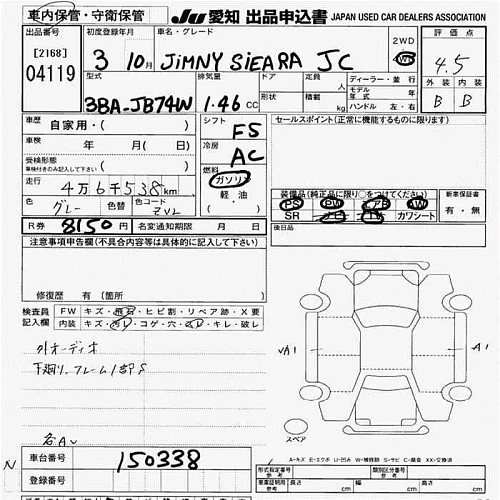 車内保管・守衛保管
JU 愛知 出品申込書 JAPAN USED CAR DEALERS ASSOCIATION
出品番号
[2168]
04119
初度登録年月
3 10月
車名・グレード
JiMNY SiEARA JC
2WD
4WD
評価点
4.5
型式
3BA-JB74W
排気量
1.46 CC
ドア
形状
定員 人
積載 kg
ディーラー・並行
モデル年式 年
ハンドル 左・右
外装 内装
B B
車歴 自家用・( )
車検 年 月( 日)
受検形態
車検付きのみ記入して下さい ( )
走行 4万6千538km
色 グレー 色替 色コード ZVL
シフト F5
冷房 AC
燃料 ガソリン
軽・油
セールスポイント(正常に機能するものに限ります)
装備品(純正品に限り○をつけてください)
PS PW AB AW
SR カワシート
新車保証書
有・無
R券 8150円 名変通知期限 月 日
後日品
注意事項申告欄(不具合内容等は具体的に記入して下さい)
修復歴 有(箇所
検査員記入欄
FW キズ・飛石・ヒビ割・リペア跡・X要
内装 キズ・コゲ・穴・キレ・破レ
外オーディオ
下廻り、フレーム1部S
各A
VA1 A1
スペア
A-キズ E-エクボ U-凹み W-補修跡 S-サビ C-腐食 XX-交換済
N
車台番号 150338
登録番号
形式指定番号
参考
類別区分番号
参考
車庫証明用
参考
長さ cm 幅 cm 高さ cm